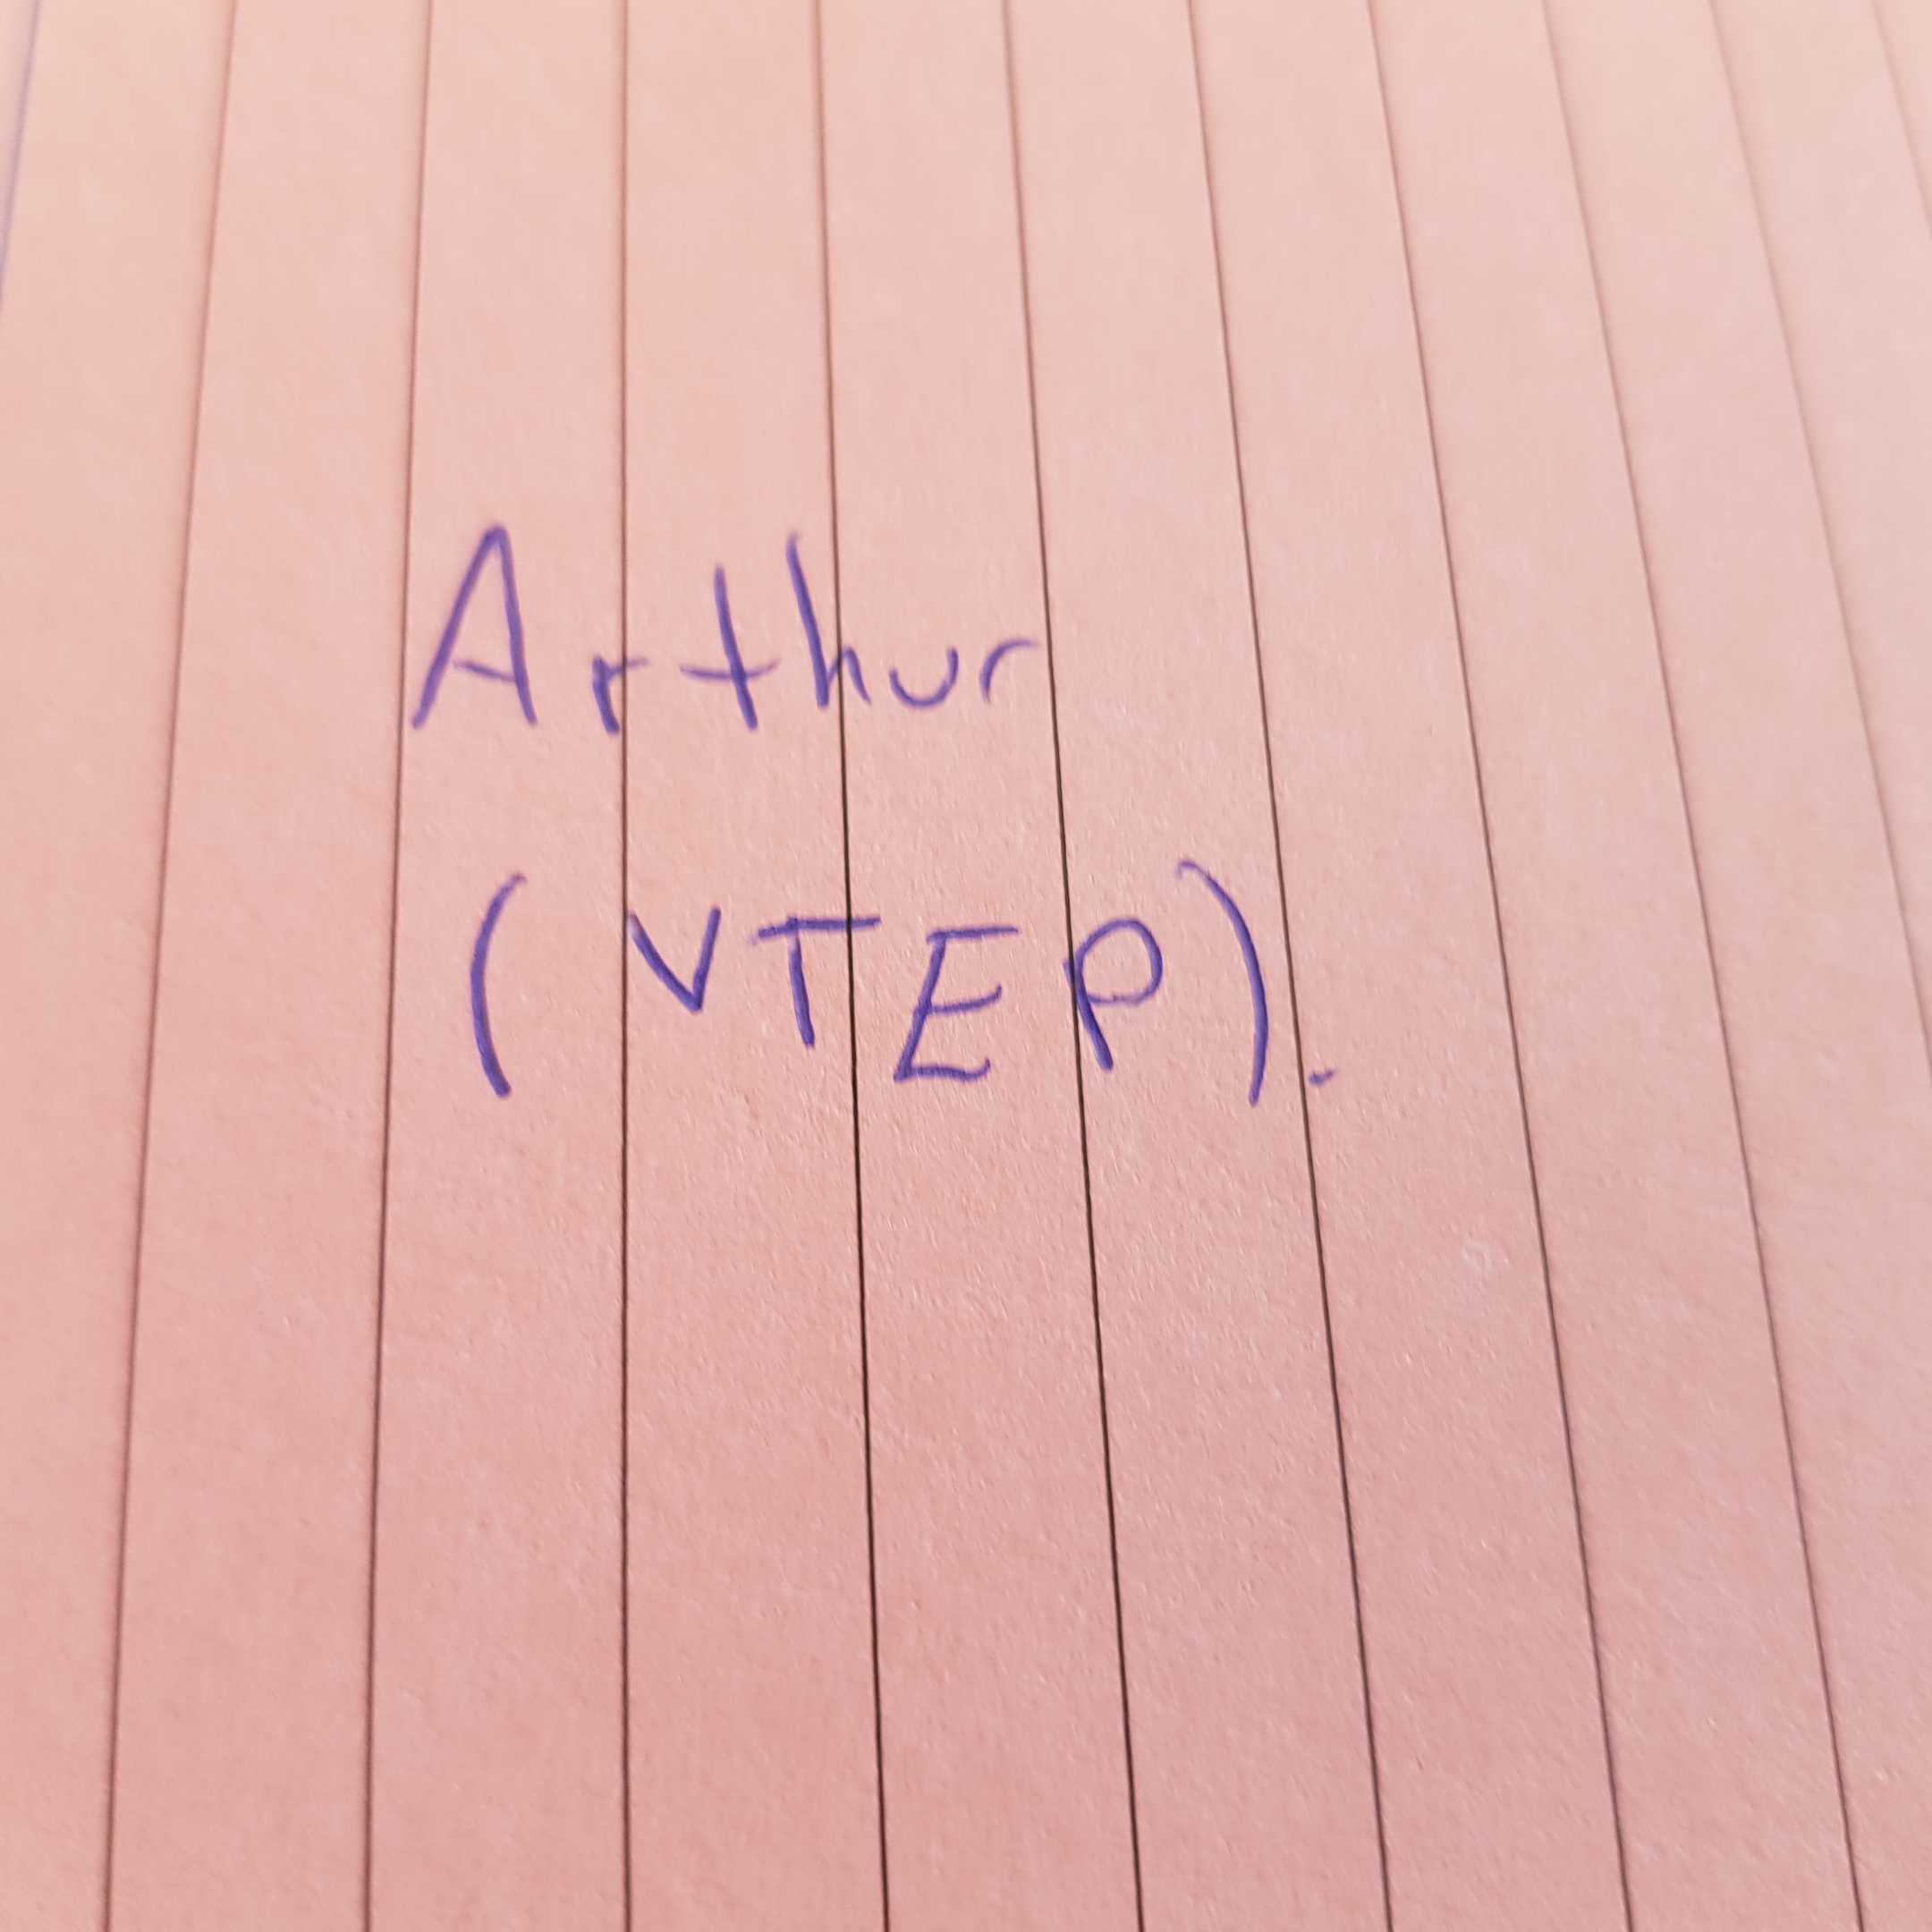 Arthur
(VTEP).